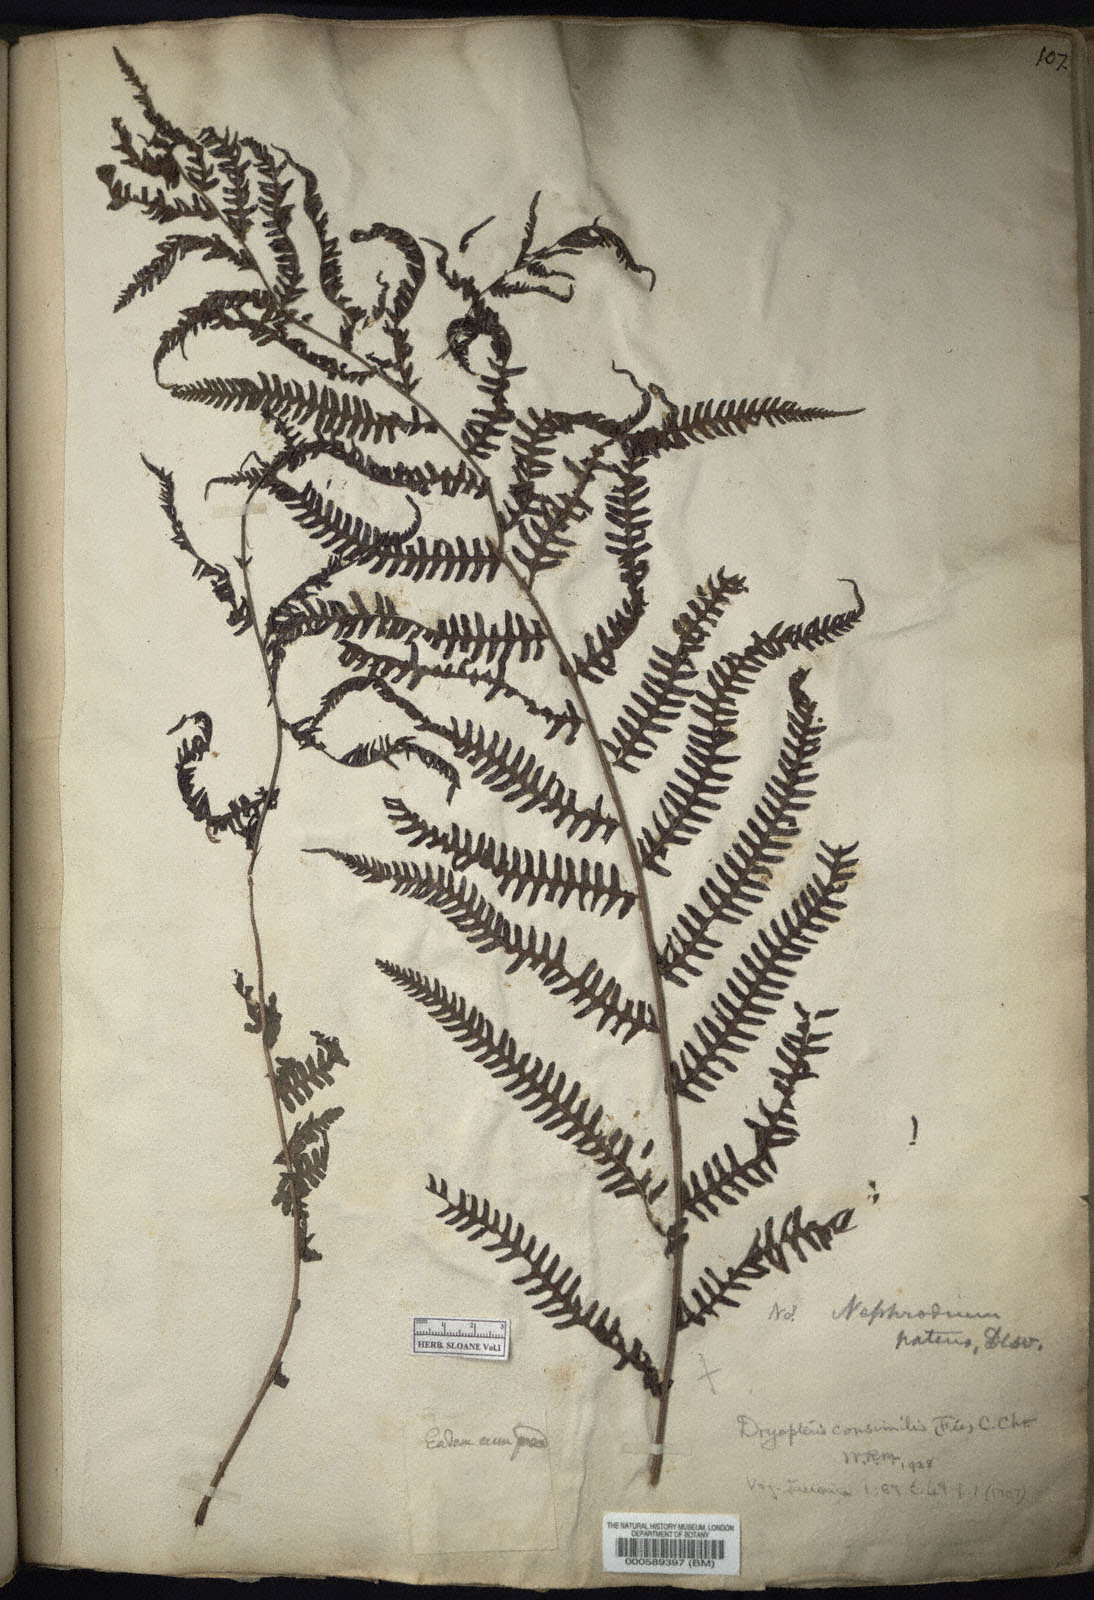 102
No. Nephrodium
patens, Desv.
HERB. SLOANE Vol.I
Eadem cum
Dryopteris consimilis (Fée) C. Chr.
W.R.M. 1928
1: 87 t. 49 f. 1 (1707)
THE NATURAL HISTORY MUSEUM, LONDON
DEPARTMENT OF BOTANY
000589397 (BM)